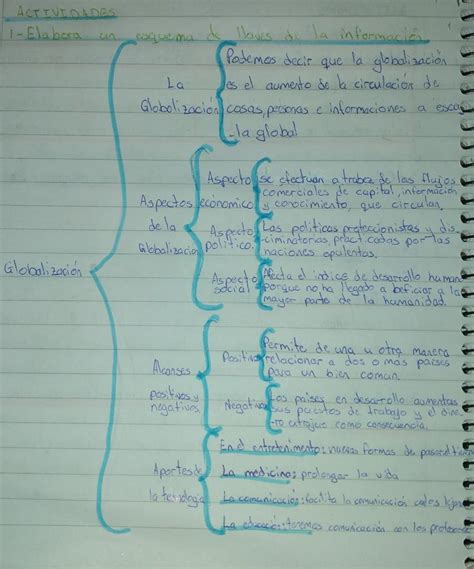 ACTIVIDADES
1-Elabora un esquema de llaves de la información
Globalización
La
Globalización
Podemos decir que la globalización
es el aumento de la circulación de
cosas, personas e informaciones a esca
-la global
Aspectos
de la
Globalización
Aspecto
económico
se efectuan a trabez de los flujos
comerciales de capital, información
y conocimiento, que circulan.
Aspecto
político
Las politicas proteccionistas y dis-
criminatorias, practicadas por las
naciones opulentas.
Aspecto
social
Afecta el indice de desarrollo humano
porque no ha llegado a beficiar a la
mayor parte de la humanidad.
Alcanses
positivos y
negativos
Positivo
Permite de una u otra manera
relacionar a dos o más paises
para un bien comun.
Negativo
Los paises en desarrollo aumentas
sus puestos de trabajo y el dine
-ro como consecuencia.
Aportes de
la tecnología
En el entretenimiento: nuevas formas de pasar el
La medicina: prolongar la vida
La comunicación: facilita la comunicación
La educación: tenemos comunicación con los